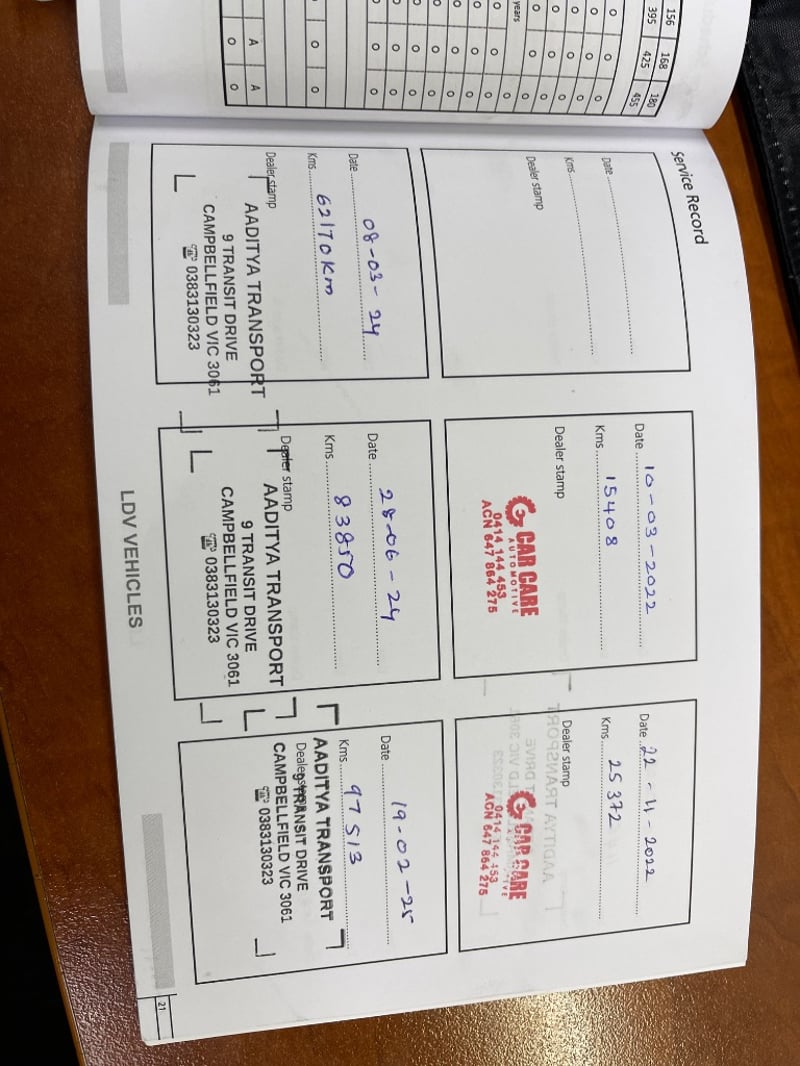 156 168 180
395 425 455
years
A A
Service Record
Date
Kms
Dealer stamp
Date 10-03-2022
Kms 15408
Dealer stamp
CAR CARE
AUTOMOTIVE
0414 144 453
ACN 647 864 275
Date 22-4-2022
Kms 25372
Dealer stamp
CAR CARE
0414 144 453
ACN 647 864 275
Date 08-03-24
Kms 62170 Km
Dealer stamp
AADITYA TRANSPORT
9 TRANSIT DRIVE
CAMPBELLFIELD VIC 3061
☎ 0383130323
Date 28-06-24
Kms 83850
Dealer stamp
AADITYA TRANSPORT
9 TRANSIT DRIVE
CAMPBELLFIELD VIC 3061
☎ 0383130323
Date 19-02-25
Kms 97513
Dealer stamp
AADITYA TRANSPORT
9 TRANSIT DRIVE
CAMPBELLFIELD VIC 3061
☎ 0383130323
LDV VEHICLES
21